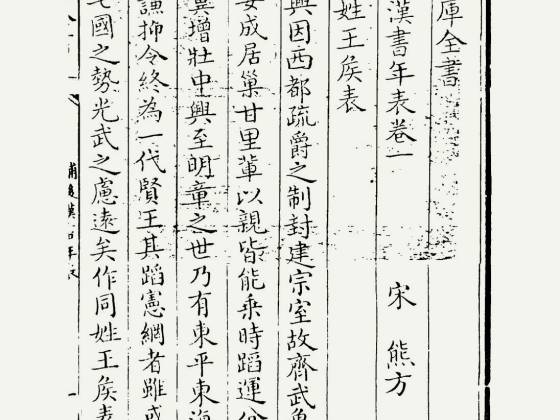 庫全書
漢書年表卷一
宋 熊方
姓王侯表
興因西都疏爵之制封建宗室故齊武魯
安成居巢甘里輩以親皆能乘時蹈運
冀增壯中興至明章之世乃有東平東海
謙抑令終為一代賢王其蹈憲網者雖或
七國之勢光武之慮遠矣作同姓王侯表
補後漢書年表
一